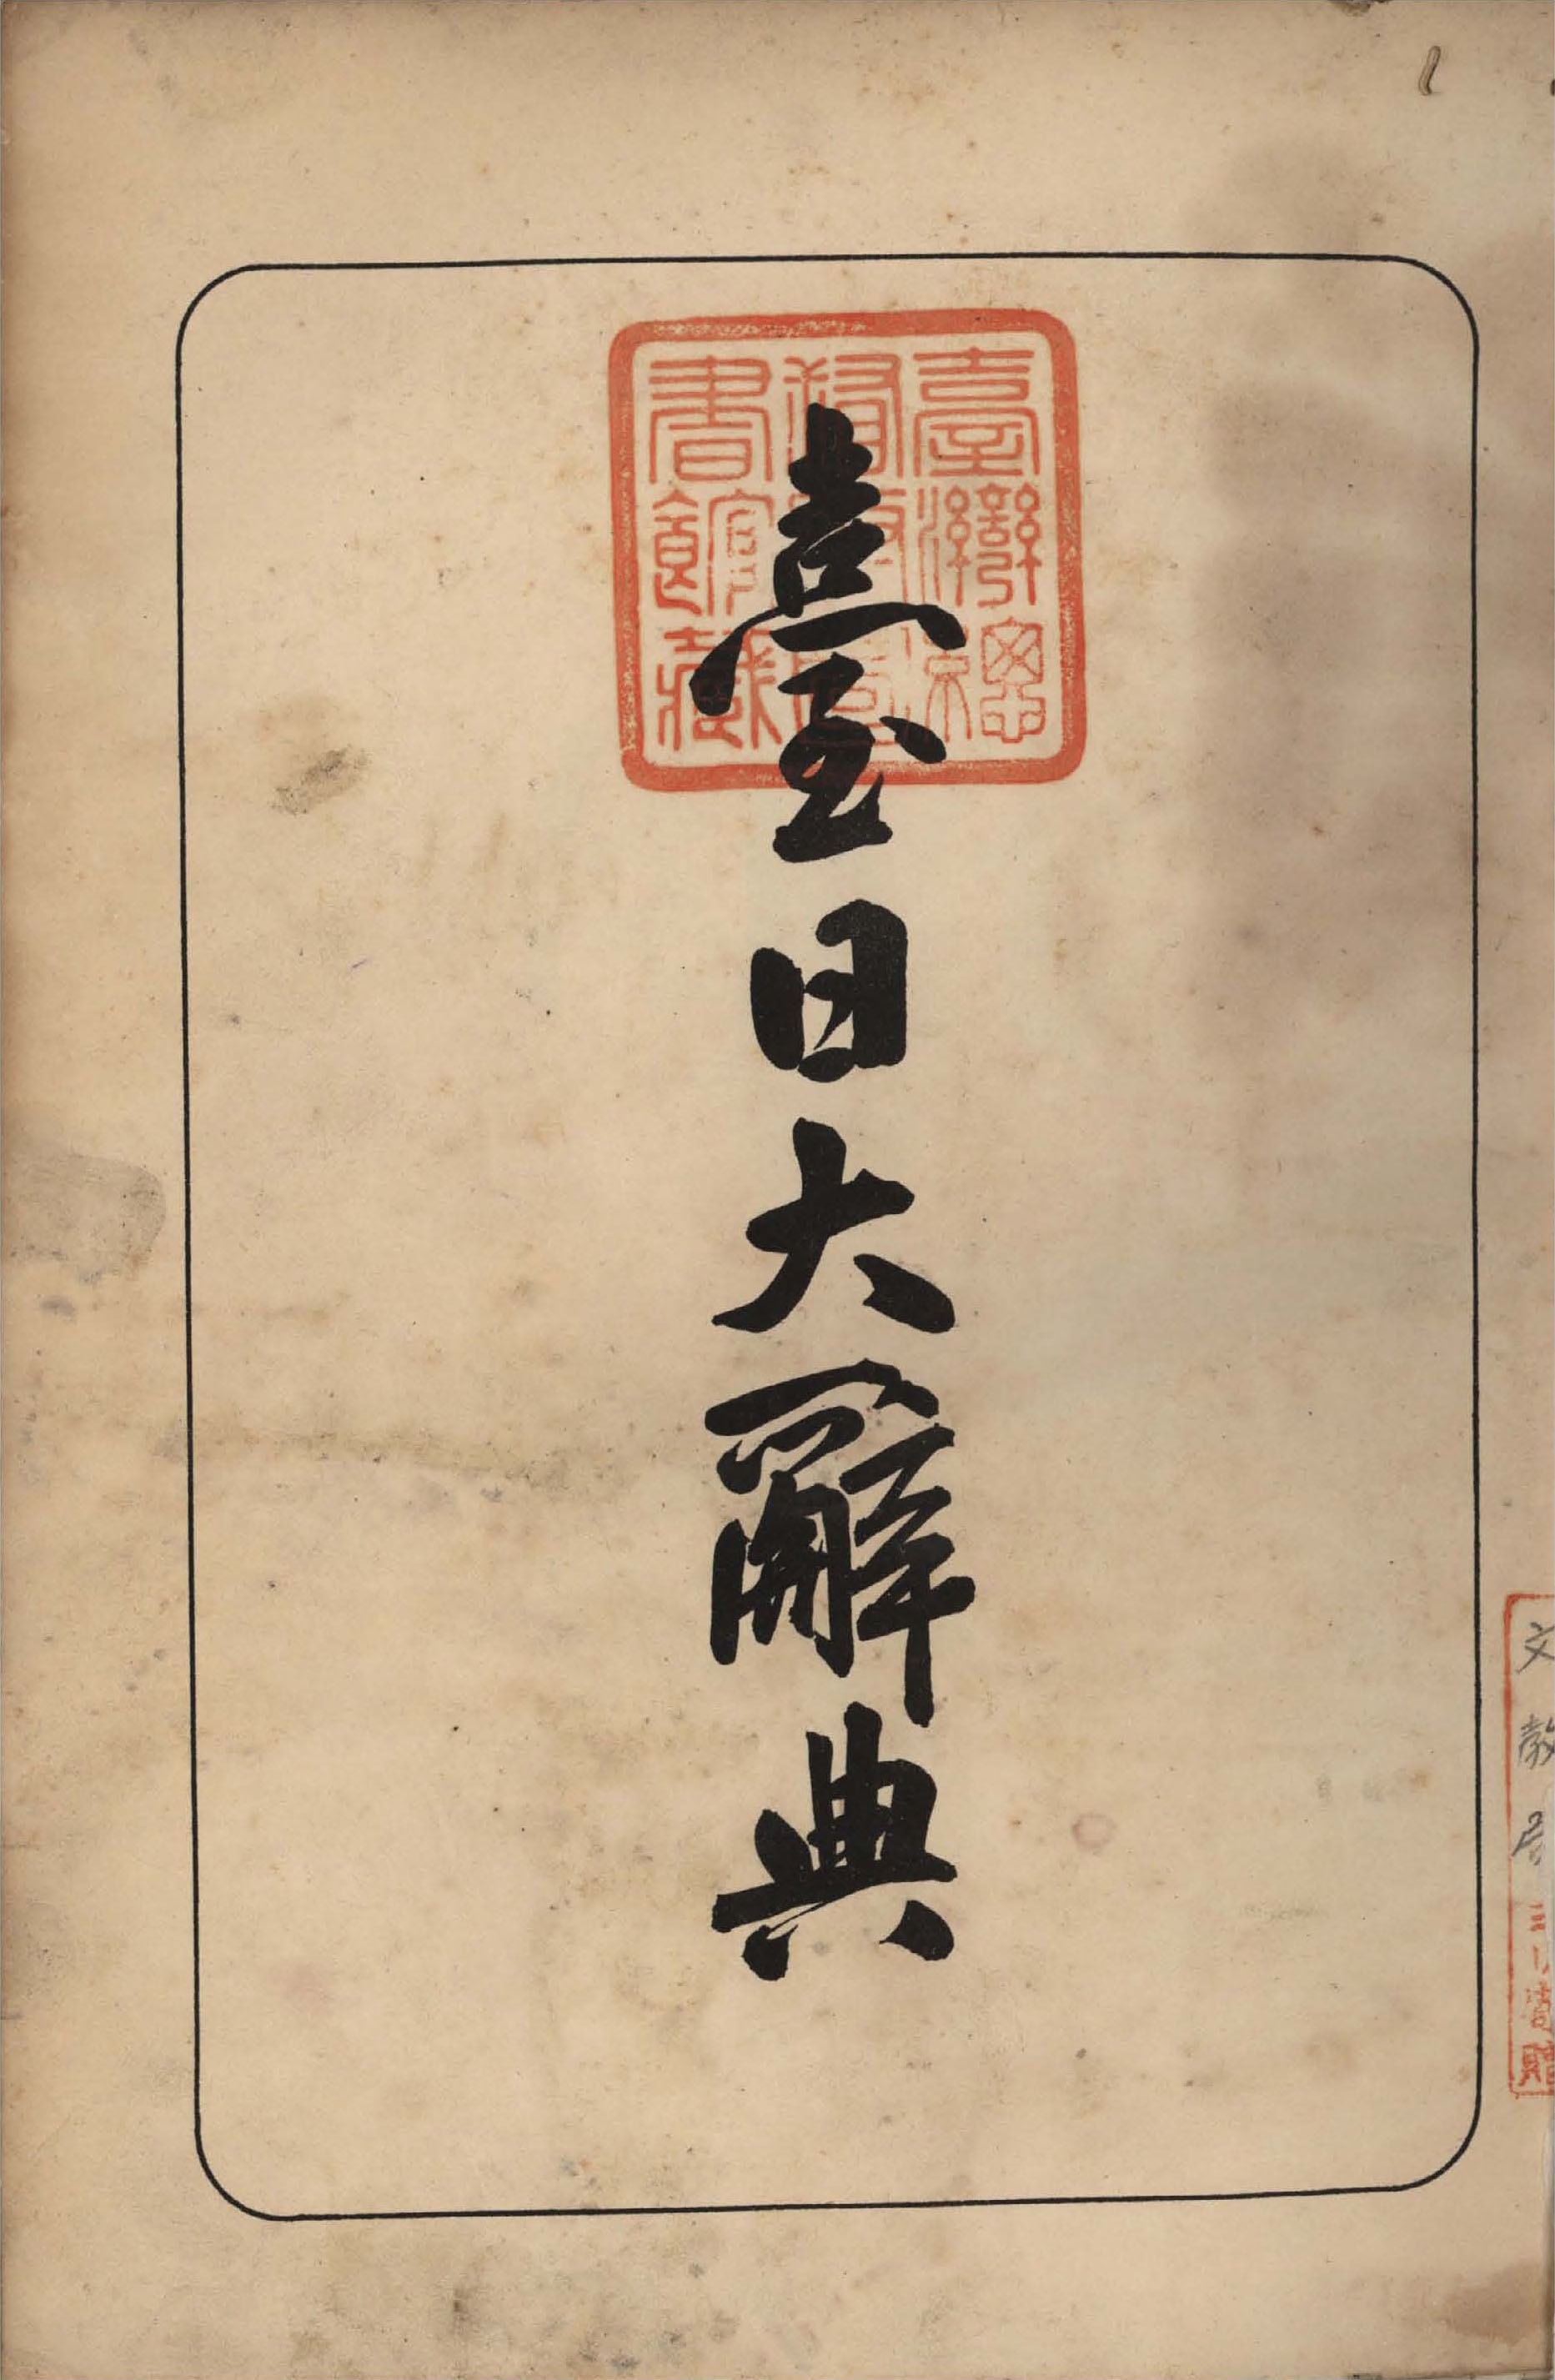 臺日大辭典
臺灣總
督府圖
書館藏
文教局
寄贈